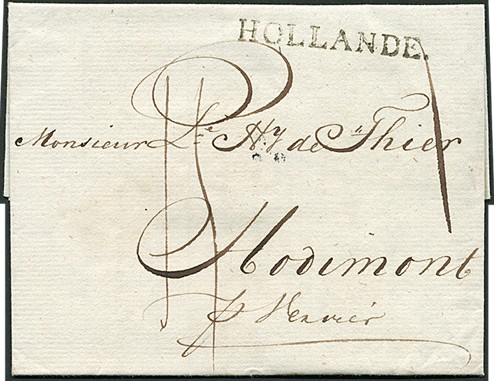 HOLLANDE.
Monsieur L.e Hy de Thier
Hodimont
p Vervier